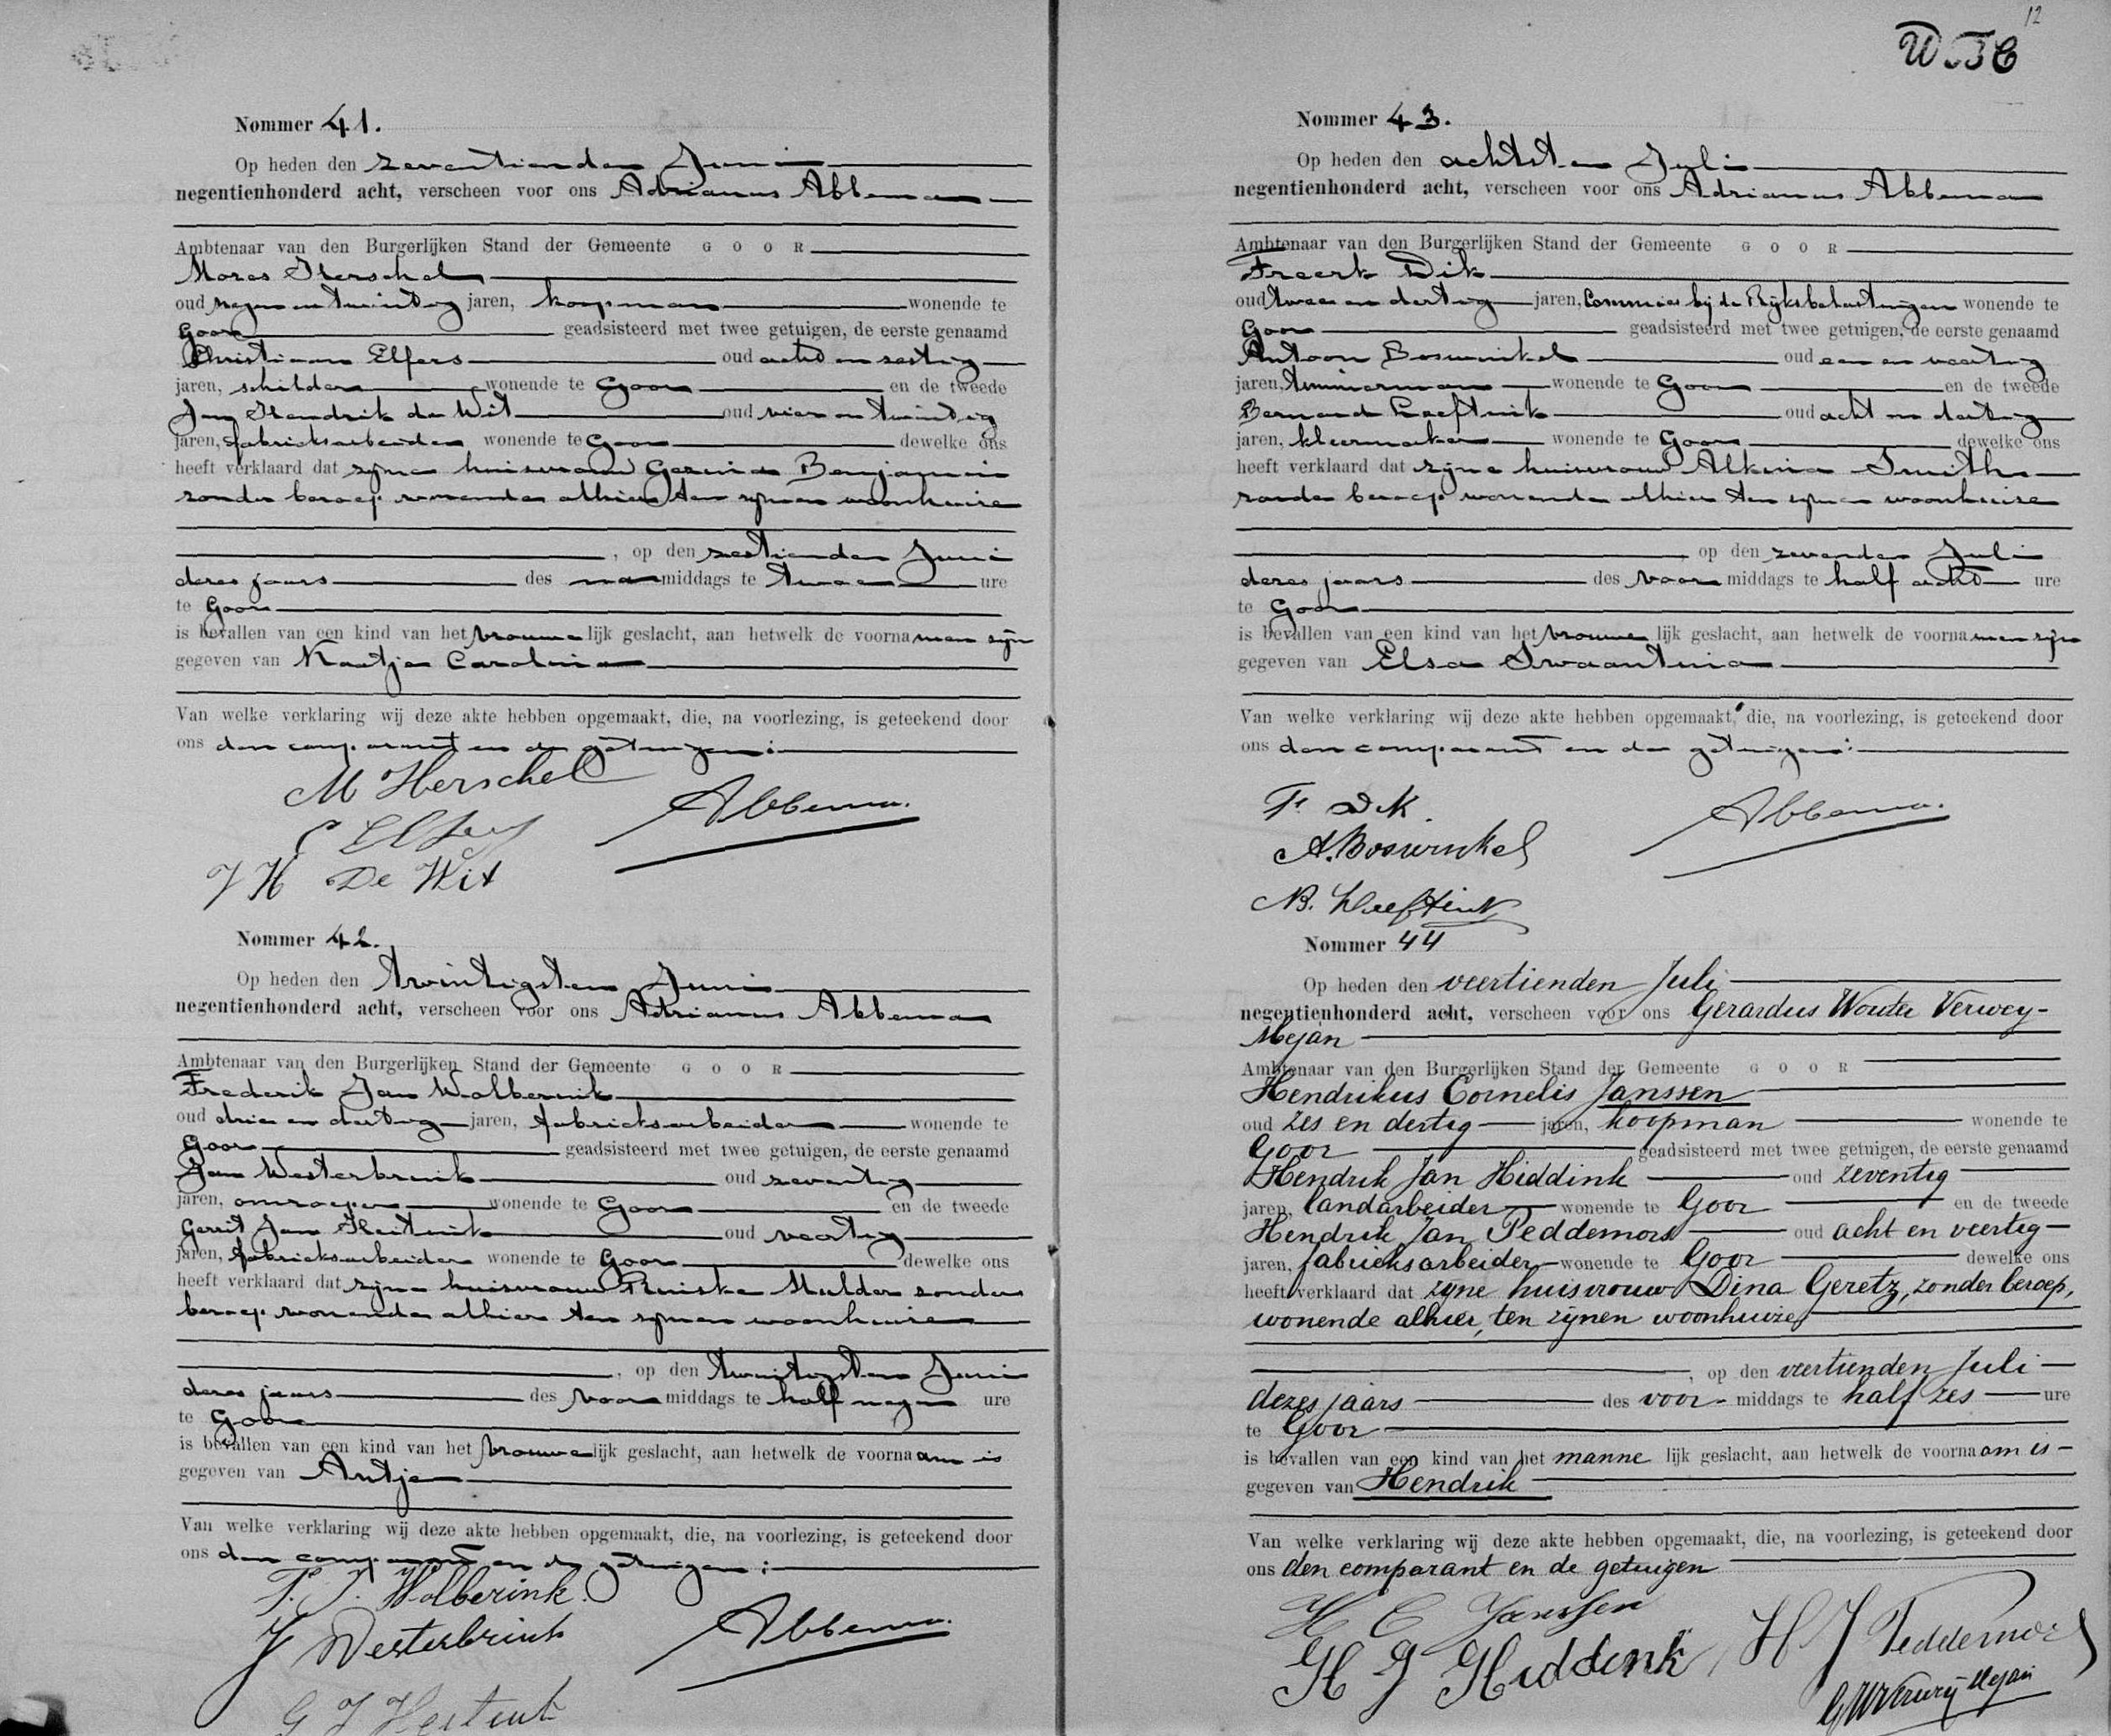 Nommer 41.
Op heden den zeventienden Juni
negentienhonderd acht, verscheen voor ons Adrianus Abbema
Ambtenaar van den Burgerlijken Stand der Gemeente GOOR
Mozes Herschel
oud negen en twintig jaren, koopman wonende te
Goor geadsisteerd met twee getuigen, de eerste genaamd
Christiaan Elfers oud acht en zestig
jaren, schilder wonende te Goor en de tweede
Jan Hendrik de Wit oud vier en twintig
jaren, fabrieksarbeider wonende te Goor dewelke ons
heeft verklaard dat zijne huisvrouw Benjamin
zonder beroep wonende alhier ten zijnen woonhuize
, op den zestienden Juni
dezes jaars des na middags te twee ure
te Goor
is bevallen van een kind van het vrouwelijk geslacht, aan hetwelk de voornamen zijn
gegeven van Kaatje Carolina
Van welke verklaring wij deze akte hebben opgemaakt, die, na voorlezing, is geteekend door
ons den comparant en de getuigen:
M Herschel
Abbema.
C Elfers
J H De Wit
Nommer 42.
Op heden den twintigsten Juni
negentienhonderd acht, verscheen voor ons Adrianus Abbema
Ambtenaar van den Burgerlijken Stand der Gemeente GOOR
Frederik Jan Wolberink
oud drie en dertig jaren, fabrieksarbeider wonende te
Goor geadsisteerd met twee getuigen, de eerste genaamd
Jan Westerbrink oud zeventig
jaren, omroeper wonende te Goor en de tweede
Gerrit Jan Heitink oud veertig
jaren, fabrieksarbeider wonende te Goor dewelke ons
heeft verklaard dat zijne huisvrouw Mulder zonder
beroep wonende alhier ten zijnen woonhuize
, op den twintigsten Juni
dezes jaars des voor middags te half negen ure
te Goor
is bevallen van een kind van het vrouwelijk geslacht, aan hetwelk de voornaam is
gegeven van Antje
Van welke verklaring wij deze akte hebben opgemaakt, die, na voorlezing, is geteekend door
ons den comparant en de getuigen:
F. J. Wolberink.
J Westerbrink
Abbema.
G J Heitink
12
Nommer 43.
Op heden den achtsten Juli
negentienhonderd acht, verscheen voor ons Adrianus Abbema
Ambtenaar van den Burgerlijken Stand der Gemeente GOOR
Freerk Dik
oud twee en dertig jaren, Commies bij de Rijksbelastingen wonende te
Goor geadsisteerd met twee getuigen, de eerste genaamd
Antoon Boswinkel oud een en veertig
jaren, timmerman wonende te Goor en de tweede
Bernard Leeftink oud acht en dertig
jaren, kleermaker wonende te Goor dewelke ons
heeft verklaard dat zijne huisvrouw Smith
zonder beroep wonende alhier ten zijnen woonhuize
op den zevenden Juli
dezes jaars des voor middags te half acht ure
te Goor
is bevallen van een kind van het vrouwelijk geslacht, aan hetwelk de voornamen zijn
gegeven van Elsa Swaantina
Van welke verklaring wij deze akte hebben opgemaakt, die, na voorlezing, is geteekend door
ons den comparant en de getuigen:
F. Dik.
Abbema.
A. Boswinkel
B. Leeftink
Nommer 44
Op heden den veertienden Juli
negentienhonderd acht, verscheen voor ons Gerardus Wouter Verwey-
Mejan
Ambtenaar van den Burgerlijken Stand der Gemeente GOOR
Hendrikus Cornelis Janssen
oud zes en dertig jaren, koopman wonende te
Goor geadsisteerd met twee getuigen, de eerste genaamd
Hendrik Jan Hiddink oud zeventig
jaren, landarbeider wonende te Goor en de tweede
Hendrik Jan Peddemors oud acht en veertig
jaren, fabrieksarbeider wonende te Goor dewelke ons
heeft verklaard dat zijne huisvrouw Dina Geretz, zonder beroep,
wonende alhier, ten zijnen woonhuize,
, op den veertienden Juli
dezes jaars des voor- middags te half zes ure
te Goor
is bevallen van een kind van het mannelijk geslacht, aan hetwelk de voornaam is
gegeven van Hendrik
Van welke verklaring wij deze akte hebben opgemaakt, die, na voorlezing, is geteekend door
ons den comparant en de getuigen
H C Janssen
H J Hiddink
H J Peddemors
GWVerwey Mejan